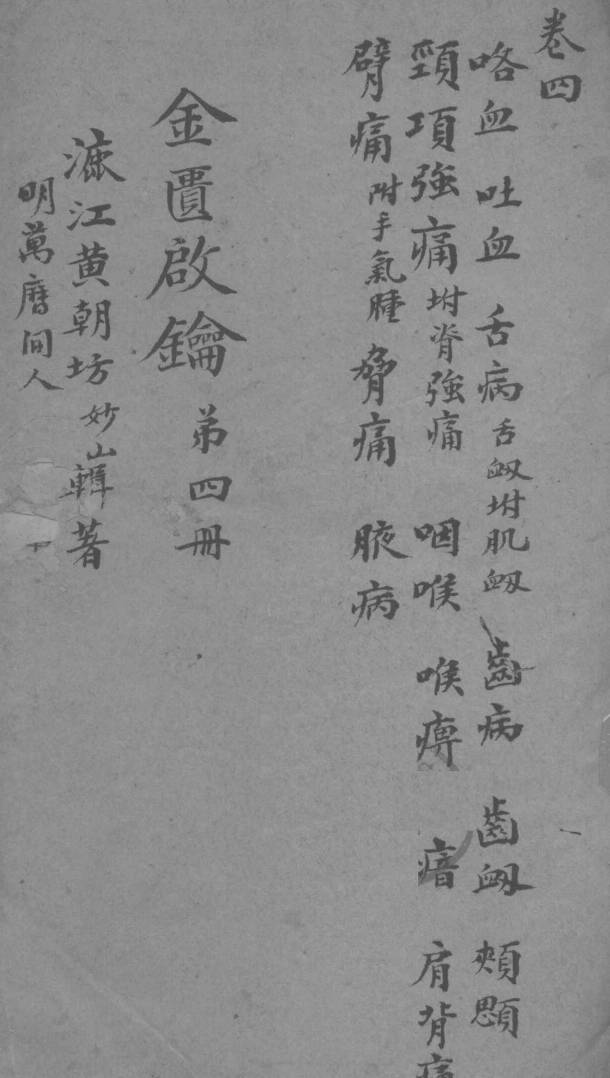 卷四
咯血 吐血 舌病 舌衂坿肌衂 齒病 齒衂 頰顋
頸項強痛 坿脊強痛 咽喉 喉痹 瘖 肩背痛
臂痛 附手氣腫 脅痛 腋病
金匱啟鑰 弟四冊
漉江黄朝坊妙山輯著
明萬曆间人